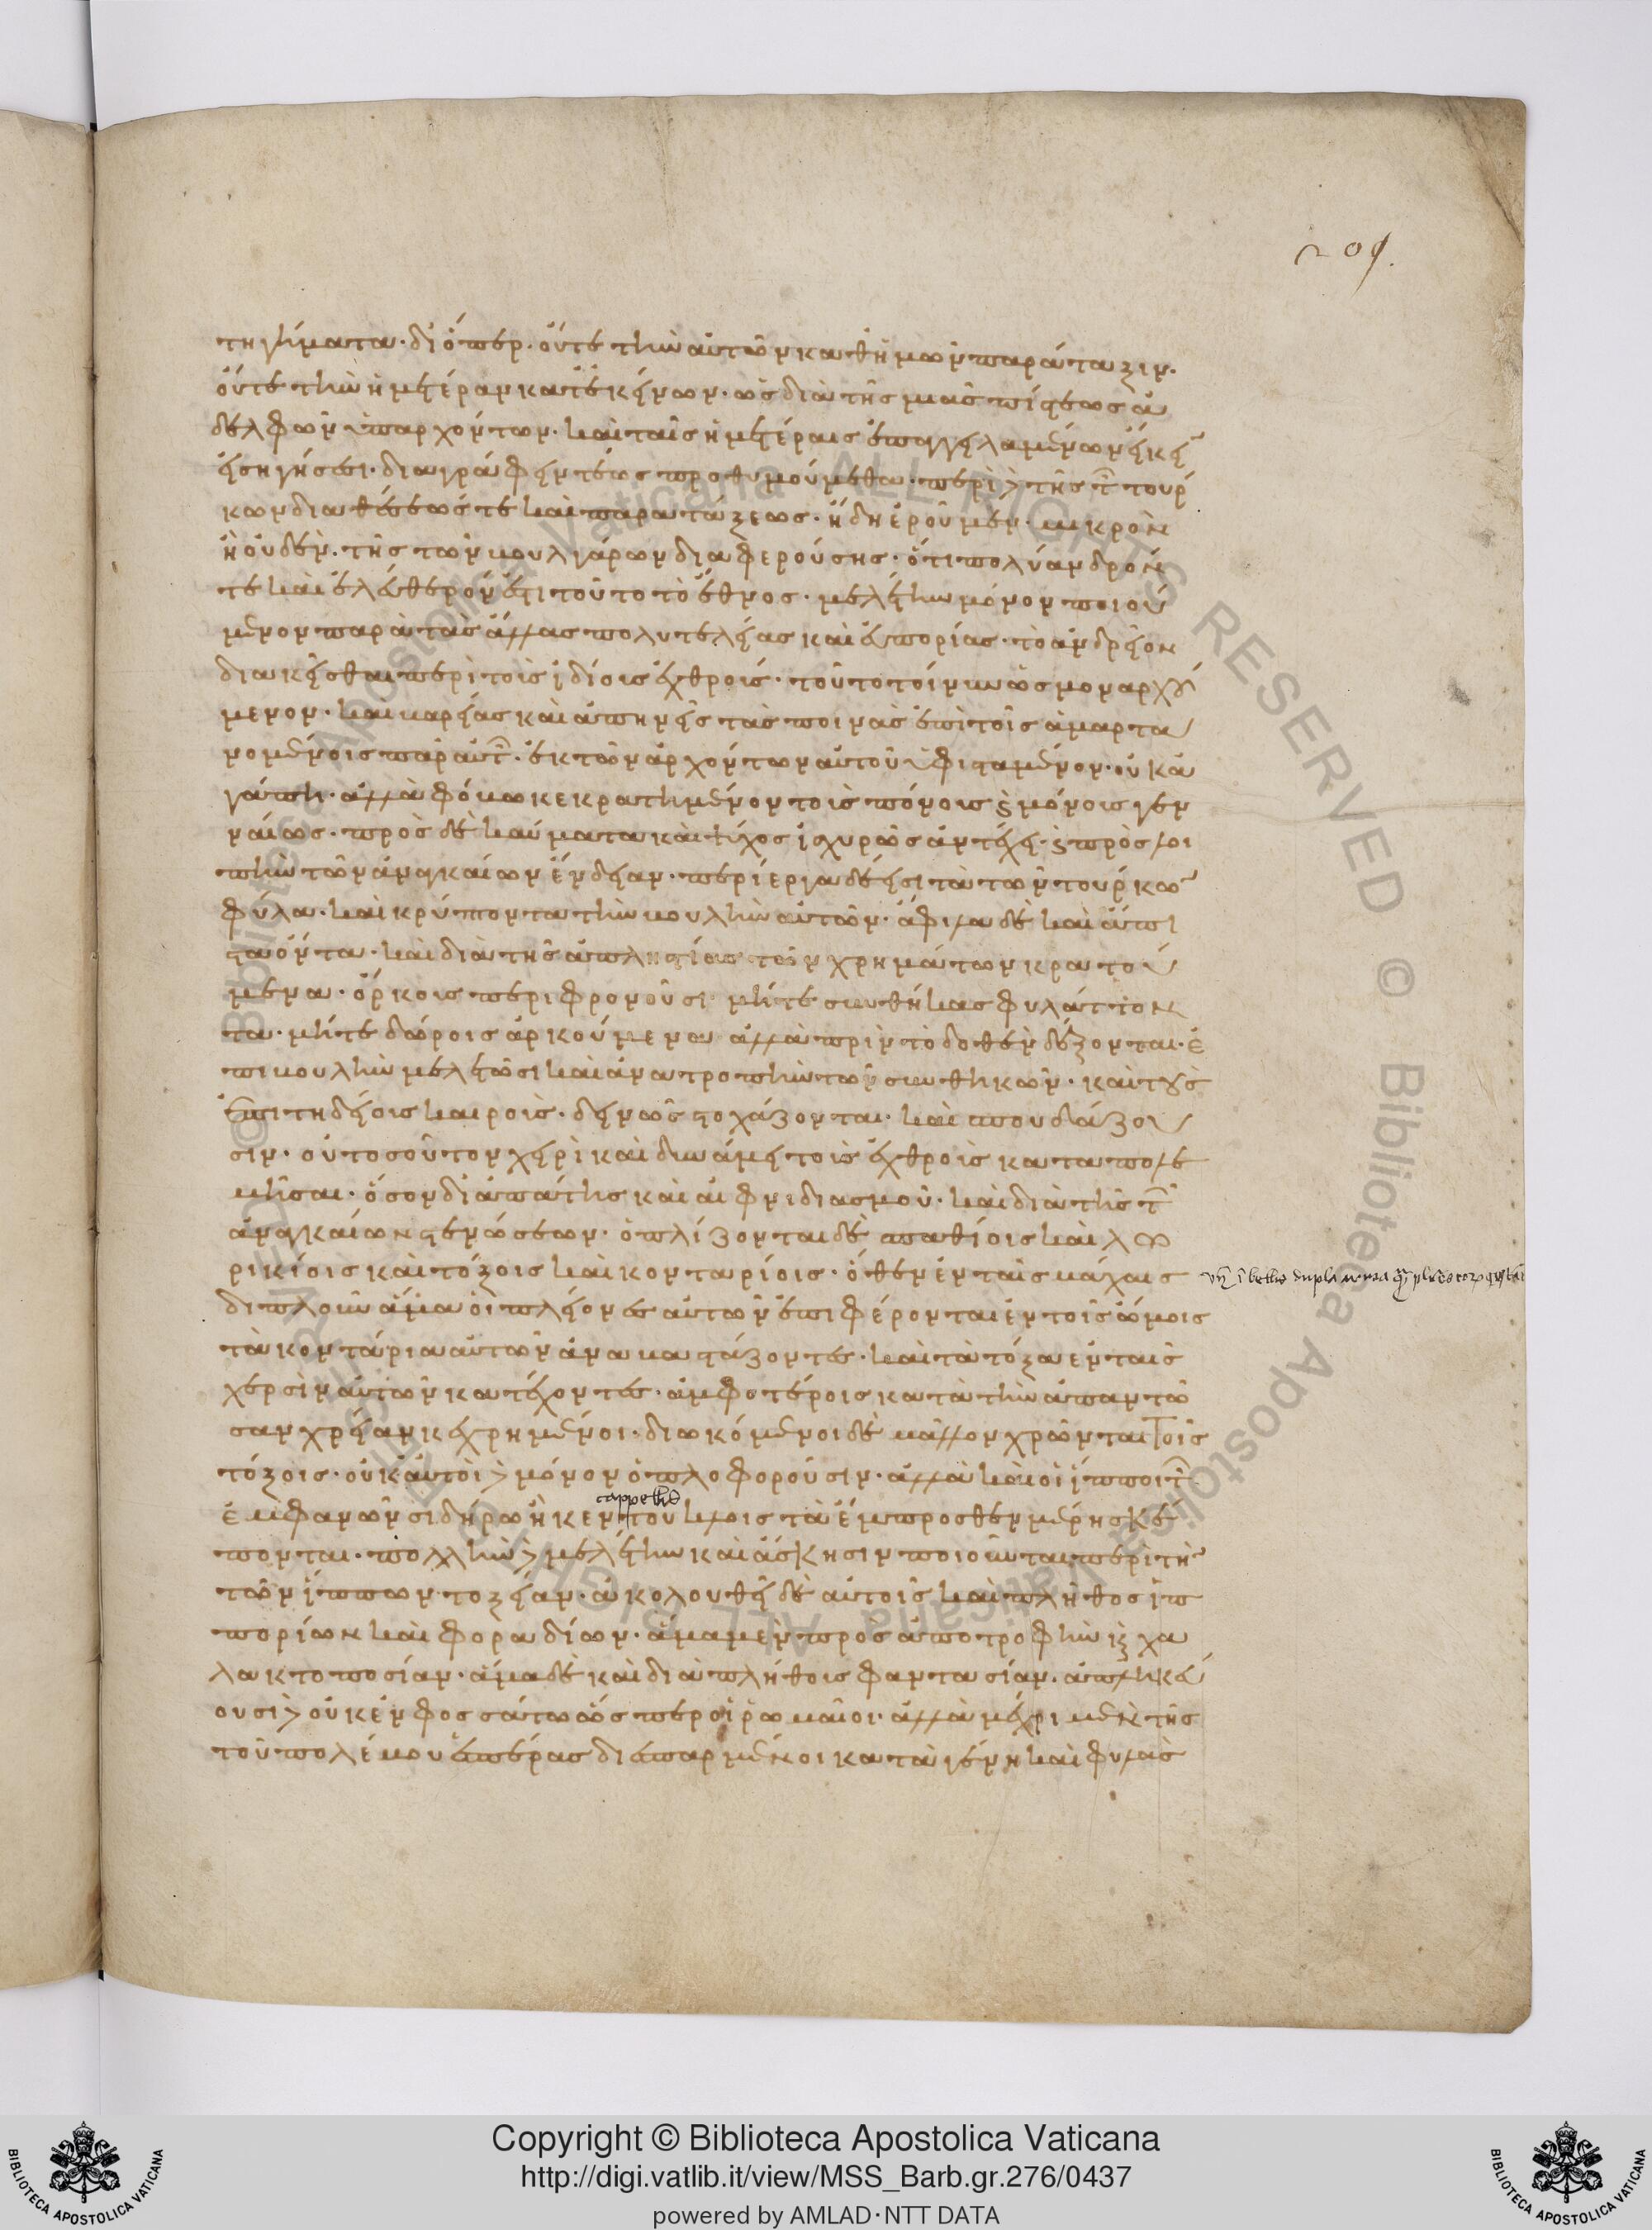 τηγήματα· διόπερ. οὔτε τὴν αὐτῶν καθ ἡμῶν παράταξιν.
οὔτε τὴν ἡμετέραν κατ ἐκείνων. ὡς διὰ τῆς μιᾶς πίστεως ἀ
δελφῶν ὑπαρχόντων. καὶ ταῖς ἡμετέραις ἐπαγγελαμένων εἴκει
εἰσηγήσεσι. διαγράφειν τέως προθυμούμεθα. περὶ δὲ τῆς τῶν τούρ
κων διαθέσεώς τε καὶ παρατάξεως. ἤδη ἐροῦμεν. μικρὸν
ἢ οὐδὲν. τῆς τῶν βουλγάρων διαφερούσης. ὅτι πολύανδρόν
τε καὶ ἐλεύθερόν ἐστι τοῦτο τὸ ἔθνος. μελέτην μόνον ποιού
μενον παρὰ τὰς ἄλλας πολυτελείας καὶ εὐπορίας. τὸ ἀνδρεῖον
διακεῖσθαι περὶ τοῖς ἰδίοις ἐχθροῖς. τοῦτο τοίνυν ὡς μοναρχού
μενον. καὶ βαρείας καὶ ἀπηνεῖς τὰς ποινὰς ἐπὶ τοῖς ἁμαρτα
νομένοις παρ αὐτῶν. ἐκ τῶν ἀρχόντων αὐτοῦ ὑφισταμένον. οὐκ ἀ
γάπῃ. ἀλλὰ φόβω κεκρατημένον τοῖς πόνοις καὶ μόνοις γεν
ναίως. πρὸς δὲ καύματα καὶ ψύχος ἰσχυρῶς ἀντέχει. καὶ πρὸς λοι
πὴν τῶν ἀναγκαίων ἔνδειαν. περίεργα δέ εἰσι τὰ τῶν τούρκων
φύλα. καὶ κρύπτοντα τὴν βουλὴν αὐτῶν. ἄφιλα δὲ καὶ ἀπι
στοῦντα. καὶ διὰ τῆς ἀπληστίας τῶν χρημάτων κρατού
μενα. ὅρκοις περιφρονοῦσι. μήτε συνθήκας φυλάττον
τα. μήτε δώροις ἀρκούμενα ἀλλὰ πρὶν τὸ δοθὲν δέξονται. ἐ
πιβουλὴν μελετῶσι καὶ ἀνατροπὴν τῶν συνθηκῶν. καὶ τοὺς
ἐπιτηδείοις καιροῖς. δεινῶς στοχάζονται. καὶ σπουδάζου
σιν. οὐ τοσοῦτον χειρὶ καὶ δυνάμει τοῖς ἐχθροῖς καταπολε
μῆσαι. ὅσον δι ἀπάτης καὶ αἰφνιδιασμοῦ. καὶ διὰ τῆς τῶν
ἀναγκαίων στενώσεων. ὁπλίζονται δὲ σπαθίοις καὶ λω
ρικίοις καὶ τόξοις καὶ κονταρίοις. ὅθεν ἐν ταῖς μάχαις
διπλοῦν ἅμα οἱ πλείονες αὐτῶν ἐπιφέρονται ἐν τοῖς ὤμοις
τὰ κοντάρια αὐτῶν ἀναβαστάζοντες. καὶ τὰ τόξα ἐν ταῖς
χερσὶν αὐτῶν κατέχοντες. ἀμφοτέροις κατὰ τὴν ἀπαντῶ
σαν χρείαν κεχρημένοι. διωκόμενοι δὲ μᾶλλον χρῶνται τοῖς
τόξοις. οὐκ αὐτοὶ δὲ μόνον ὁπλοφοροῦσιν. ἀλλὰ καὶ οἱ ἵπποι τῶν
cappellis
ἐμφανῶν σιδήρω ἢ κεντούκλοις τὰ ἔμπροσθεν μέρη σκέ
πονται. πολλὴν δὲ μελέτην καὶ ἄσκησιν ποιοῦνται περὶ τὴν
τῶν ἵππων τοξείαν. ἀκολουθεῖ δὲ αὐτοῖς καὶ πλῆθος ἱπ
παρίων καὶ φοραδίων. ἅμα μὲν πρὸς ἀποτροφὴν καὶ γα
λακτοποσίαν. ἅμα δὲ καὶ διὰ πλήθοις φαντασίαν. ἀπληκεύ
ουσι δὲ οὐκ ἐν φοσσάτω ὥσπερ οἱ ῥωμαῖοι. ἀλλὰ μέχρι μὲν τῆς
τοῦ πολέμου ἑσπέρας διεσπαρμένοι κατὰ γένη καὶ φυλὰς